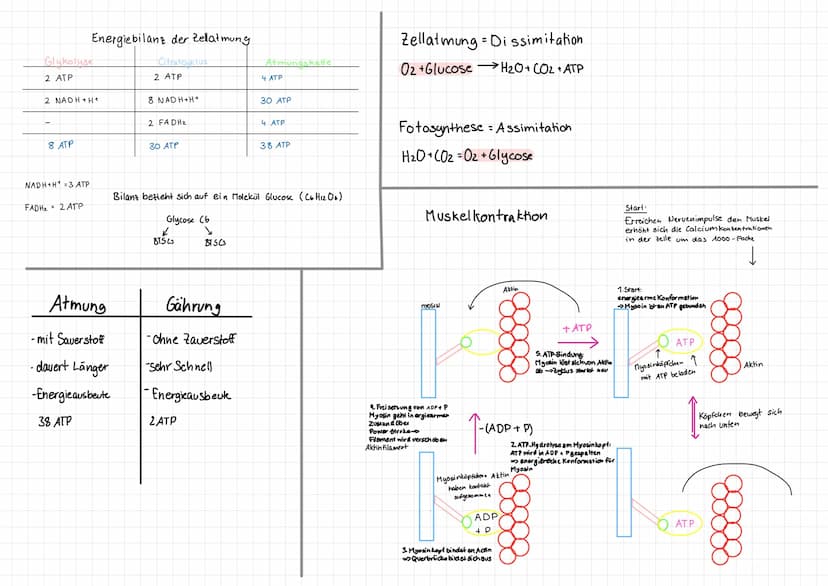 Energiebilanz der Zelatmung
Glykolyse Citratcyklus Atmungskette
2 ATP 2 ATP 4 ATP
2 NADH+H+ 8 NADH+H+ 30 ATP
- 2 FADH2 4 ATP
8 ATP 30 ATP 38 ATP
NADH+H+ = 3 ATP
FADH2 = 2 ATP
Bilanz bezieht sich auf ein Molekül Glucose (C6H12O6)
Glycose C6
BTSC3 BTSC3
Zellatmung = Dissimitation
O2+Glucose → H2O + CO2 + ATP
Fotosynthese = Assimitation
H2O + CO2 = O2 + Glycose
Atmung Gährung
- mit Sauerstoff - Ohne Zauerstoff
- dauert Länger - sehr Schnell
- Energieausbeute - Energieausbeute
38 ATP 2 ATP
Muskelkontraktion
Start:
Erreichen Nervenimpulse den Muskel
erhöht sich die Calciumkonzentrationen
in der Zelle um das 1000-Fache
Aktin
+ATP
5. ATP-Bindung:
Myosin löst sich von Aktin
ab → Zyklus startet neu
1. Start:
energiearme Konformation
→ Myosin ist an ATP gebunden
ATP
Myosinköpfchen
mit ATP beladen
Aktin
4. Freisetzung von ADP + P
Myosin geht in ergiearmen
Zustand über
Power Stroke →
Filament wird verschoben
Aktinfilament
-(ADP + P)
Köpfchen bewegt sich
nach unten
2. ATP-Hydrolyse am Myosinkopf:
ATP wird in ADP + P gespalten
→ energiereiche Konformation für
Myosin
Myosinköpfchen + Aktin
haben Kontakt
aufgenommen
ADP
+ P
3. Myosinkopf bindet an Actin
→ Querbrücke bildet sich aus
ATP